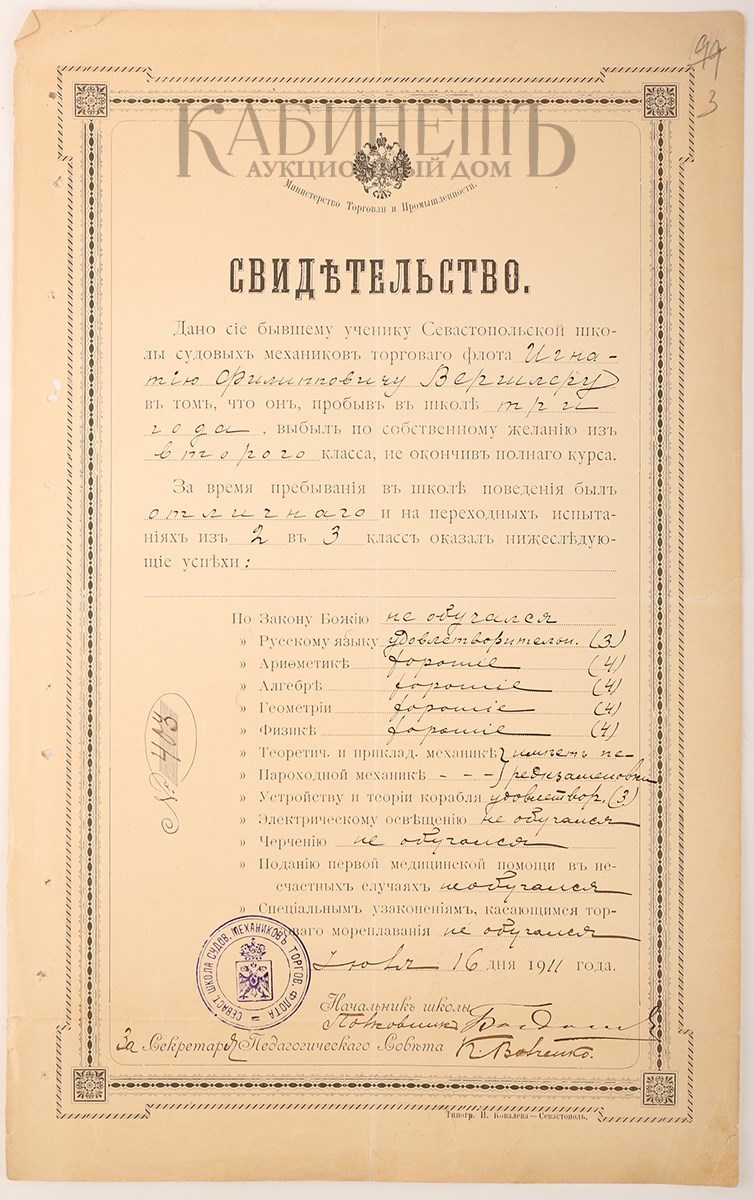 94
3
КАБИНЕТЪ
АУКЦИОННЫЙ ДОМ
Министерство Торговли и Промышленности.
СВИДѢТЕЛЬСТВО.
Дано сіе бывшему ученику Севастопольской шко-
лы судовыхъ механиковъ торговаго флота Игна-
тію Филипповичу Вергилеру
въ томъ, что онъ, пробывъ въ школѣ три
года, выбылъ по собственному желанію изъ
второго класса, не окончивъ полнаго курса.
За время пребыванія въ школѣ поведенія былъ
отличнаго и на переходныхъ испыта-
ніяхъ изъ 2 въ 3 классъ оказалъ нижеслѣдую-
щіе успѣхи:
По Закону Божію не обучался
» Русскому языку удовлетворительн. (3)
» Ариѳметикѣ хорошіе (4)
» Алгебрѣ хорошіе (4)
» Геометріи хорошіе (4)
» Физикѣ хорошіе (4)
» Теоретич. и приклад. механикѣ } имѣетъ пе-
» Пароходной механикѣ - - - } реэкзаменовки
» Устройству и теоріи корабля удовлетвор. (3)
» Электрическому освѣщенію не обучался
» Черченію не обучался
» Поданію первой медицинской помощи въ не-
счастныхъ случаяхъ не обучался
» Спеціальнымъ узаконеніямъ, касающимся тор-
говаго мореплаванія не обучался
№ 403
Іюня 16 дня 1911 года.
СЕВАСТ. ШКОЛА СУДОВ. МЕХАНИКОВЪ ТОРГОВ. ФЛОТА
Начальникъ школы
Полковникъ
За Секретаря Педагогическаго Совѣта К.
Типогр. Н. Ковалева—Севастополь.